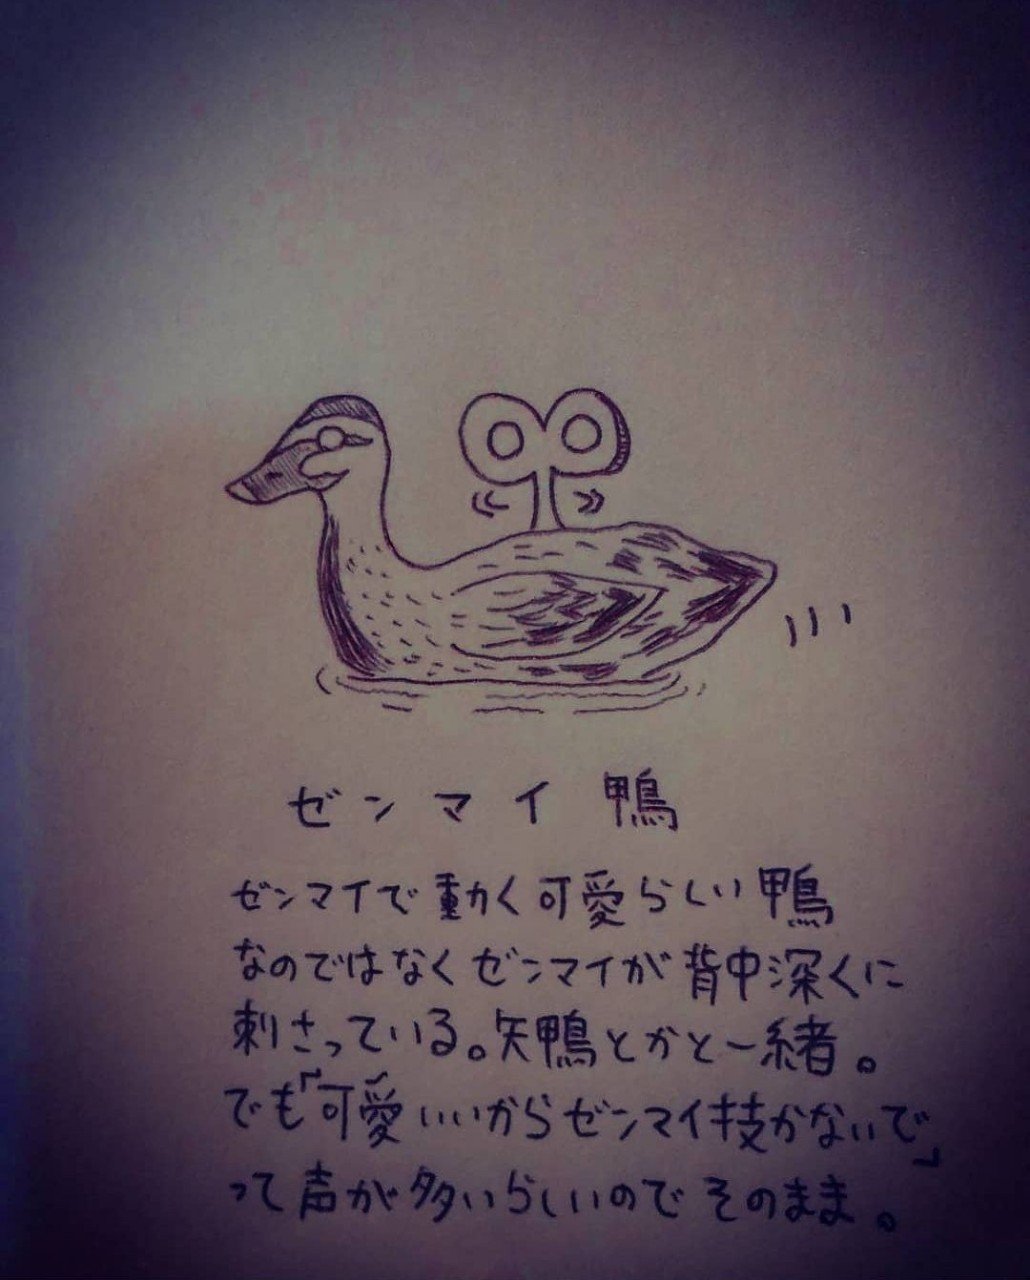 ゼンマイ鴨
ゼンマイで動く可愛らしい鴨
なのではなくゼンマイが背中深くに
刺さっている。矢鴨とかと一緒。
でも「可愛いいからゼンマイ技かないで」
って声が多いらしいのでそのまま。